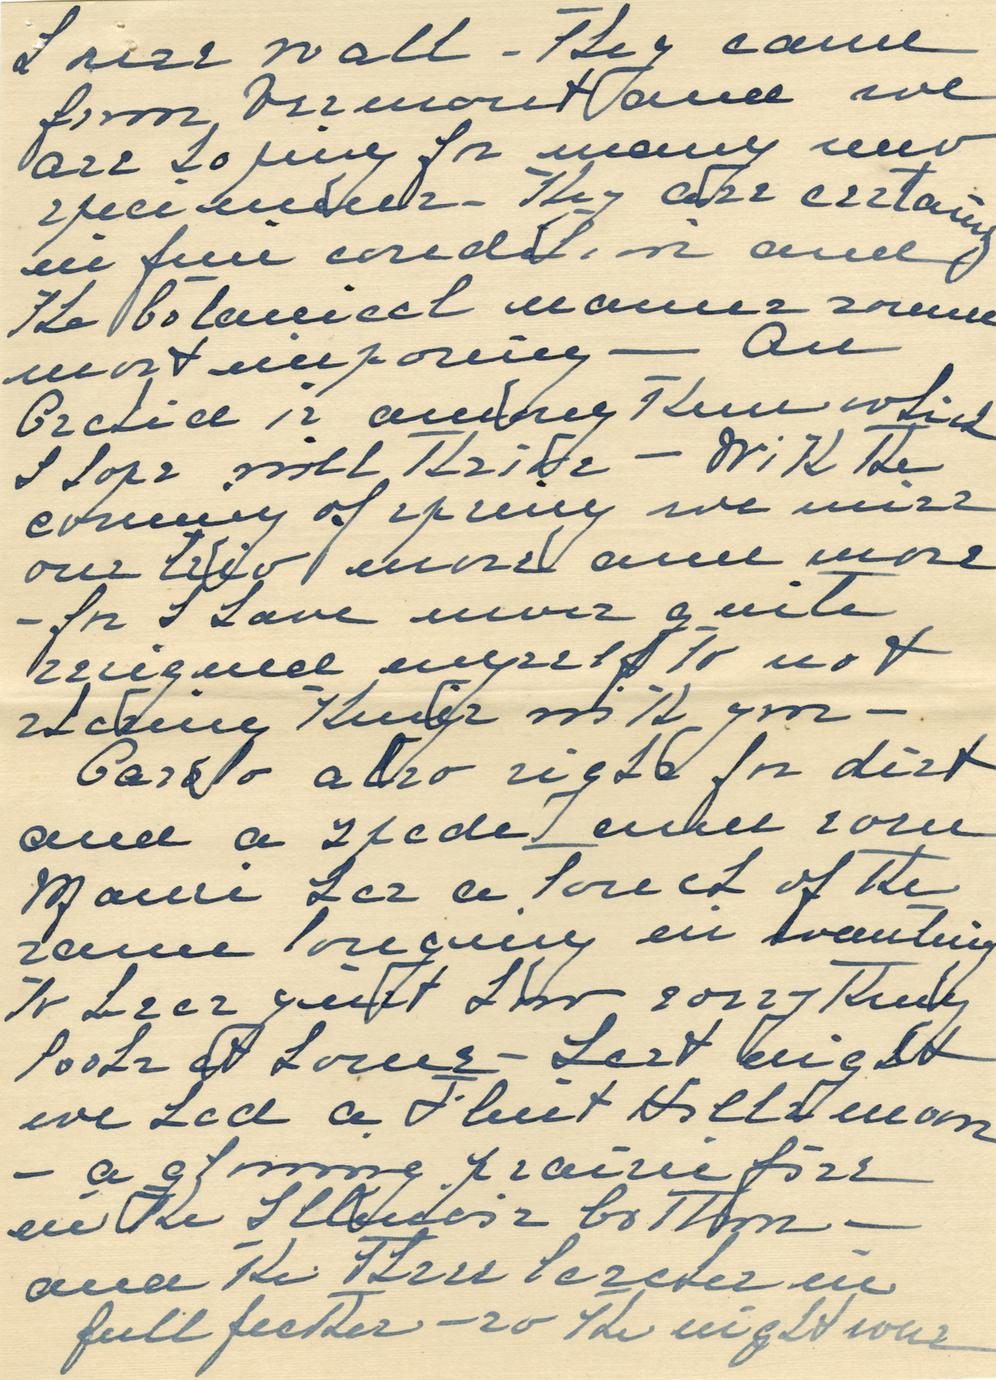 wall - They came
from Vermont and we
are hoping for many new
specimens - They are certainly
in fine condition and
the botanical names sound
most imposing — An
Orchid is among them which
I hope will thrive — With the
coming of spring we miss
our trio more and more
- for I have never quite
resigned myself to not
sharing things with you -
also sighs for dirt
and a spade, and
has a touch of the
same longing in wanting
to hear just how everything
looks at home - Last night
we had a Flint Hills moon
- a glowing prairie fire
in the Illinois bottom -
and the three in
full feather - so the night was